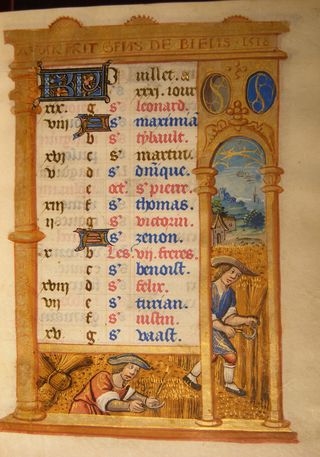 GENS DE BIENS · 1516
KL Juillet. a
xxxj. iour
xix. g sᵗ leonard.
viii A sᵗ maximiã
b sᵗ tybault.
xvi c sᵗ martin.
v d sᵗ dñique.
e oct. sᵗ pierre.
xiii f sᵗ thomas.
ii g sᵗ victorin.
A sᵗ zenon.
x b Les vii. freres.
c sᵗ benoist.
xviii d sᵗ felix.
vii e sᵗ turian.
f sᵗ iustin.
xv g sᵗ vaast.